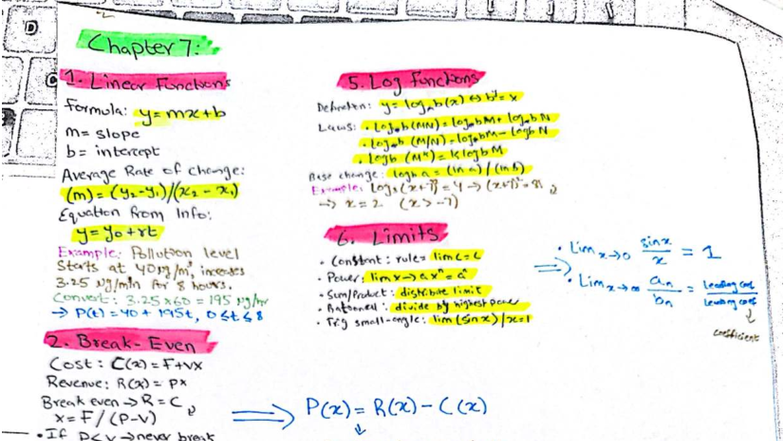 D
Chapter 7:
1. Linear Functions
Formula: y=mx+b
m= slope
b= intercept
Average Rate of change:
(m)=(y₂-y₁)/(x₂-x₁)
Equation from Info:
y=y₀+rt
Example: Pollution level
Starts at 40 µg/m³, increases
3.25 µg/min for 8 hours.
Convert: 3.25x60=195 µg/hr
→ P(t)=40+195t, 0≤t≤8
2. Break-Even
Cost: C(x)=F+vx
Revenue: R(x)=Px
Break even→R=C,
x=F/(P-V)
•If P<V→never break
5. Log functions
Definition: y=log_b(x)⇔b^y=x
Laws: •log_b(MN)=log_bM+log_bN
•log_b(M/N)=log_bM-log_bN
•log_b(M^k)=klog_bM
Base change: log_b a=(ln a)/(ln b)
→ x=2 (x>-7)
6. Limits
•Constant: rule= lim c=c
•Power: lim x→a xⁿ=aⁿ
•Sum/Product: distribute limit
•Rational: divide by highest power
•Trig small-angle: lim(sinx)/x=1
⇒ •Lim x→0 sinx/x = 1
•Lim x→∞ aₙ/bₙ = leading coef/leading coef
↓
coefficient
⇒ P(x)=R(x)-C(x)
↓